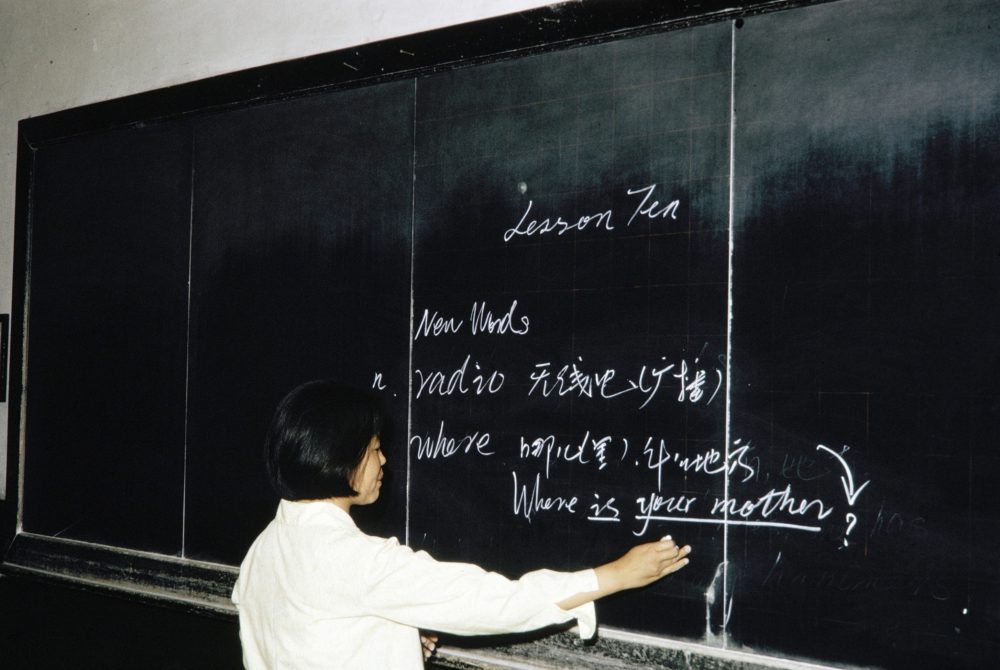 Lesson Ten
New Words
n. radio 无线电、(广播)
where 哪儿(里)、什么地方
Where is your mother ?